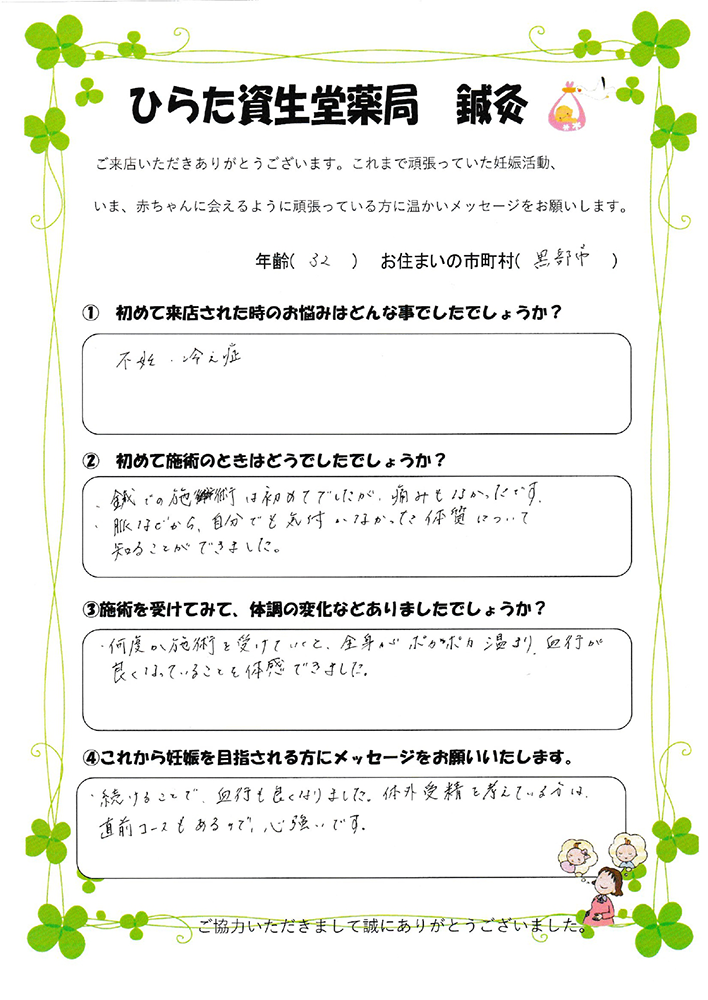 ひらた資生堂薬局　鍼灸
ご来店いただきありがとうございます。これまで頑張っていた妊娠活動、
いま、赤ちゃんに会えるように頑張っている方に温かいメッセージをお願いします。
年齢(　32　)　お住まいの市町村(　黒部市　)
①　初めて来店された時のお悩みはどんな事でしたでしょうか？
不妊・冷え症
②　初めて施術のときはどうでしたでしょうか？
・鍼での施術は初めてでしたが、痛みもなかったです。
・脈などから、自分でも気付いなかった体質について
知ることができました。
③施術を受けてみて、体調の変化などありましたでしょうか？
・何度か施術を受けていくと、全身がポカポカ温まり、血行が
良くなっていることを体感できました。
④これから妊娠を目指される方にメッセージをお願いいたします。
・続けることで、血行も良くなりました。体外受精を考えている方は、
直前コースもあるので、心強いです。
ご協力いただきまして誠にありがとうございました。